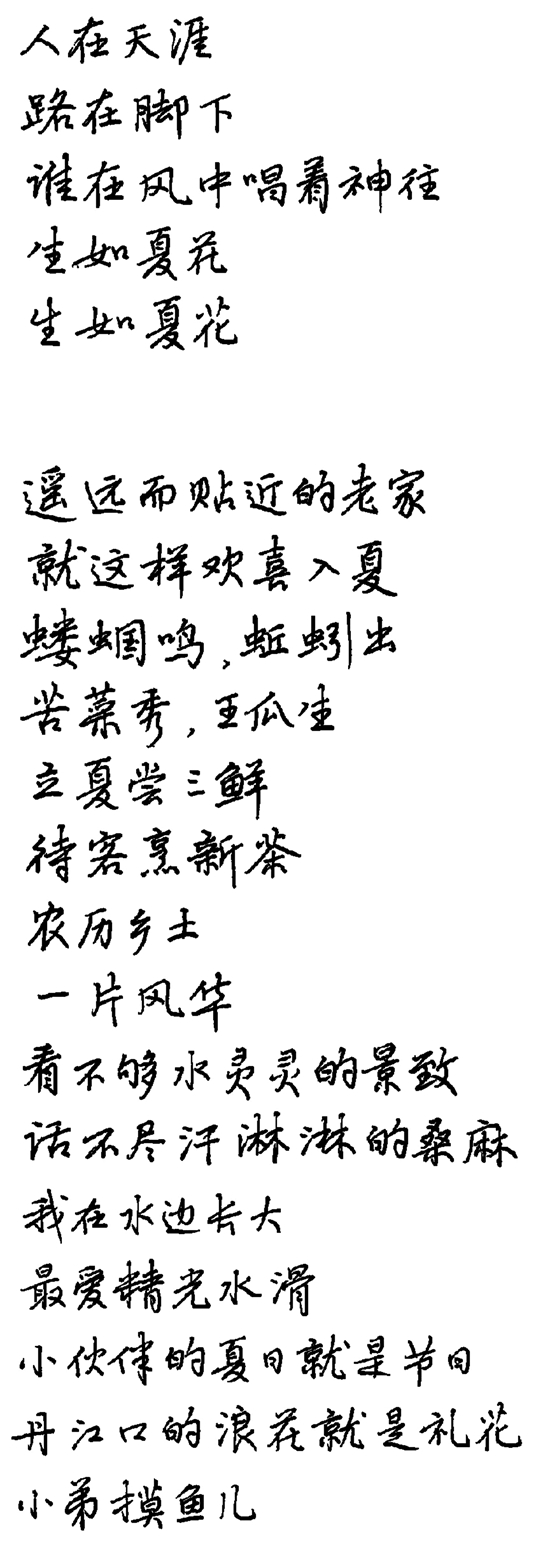 人在天涯
路在脚下
谁在风中唱着神往
生如夏花
生如夏花
遥远而贴近的老家
就这样欢喜入夏
蝼蝈鸣，蚯蚓出
苦菜秀，王瓜生
立夏尝三鲜
待客烹新茶
农历乡土
一片风华
看不够水灵灵的景致
话不尽汗淋淋的桑麻
我在水边长大
最爱精光水滑
小伙伴的夏日就是节日
丹江口的浪花就是礼花
小弟摸鱼儿